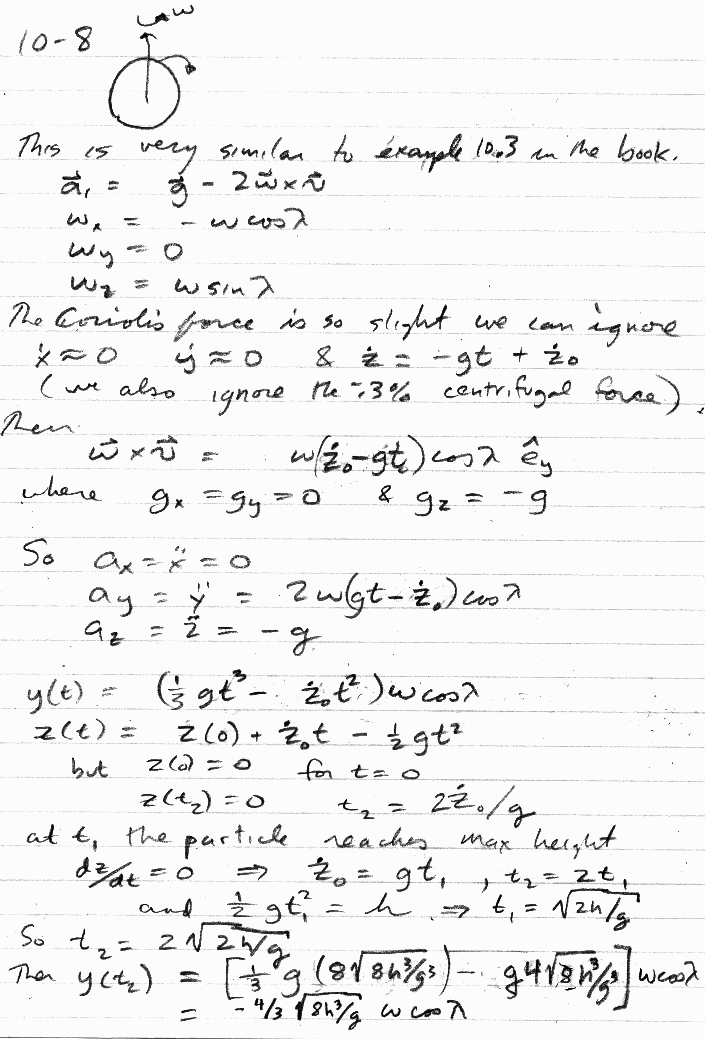 10-8
ω
This is very similar to example 10.3 in the book.
a⃗₁ = g⃗ - 2ω⃗×v⃗
ωₓ = - ω cosλ
ω_y = 0
ω_z = ω sinλ
The Coriolis force is so slight we can ignore
ẋ ≈ 0 ẏ ≈ 0 & ż = -gt + ż₀
(we also ignore the ~.3% centrifugal force).
Then
ω⃗ × v⃗ = ω(ż₀-gt) cosλ ê_y
where gₓ = g_y = 0 & g_z = -g
So aₓ = ẍ = 0
a_y = ÿ = 2ω(gt - ż₀) cosλ
a_z = z̈ = -g
y(t) = (⅓ gt³ - ż₀t²) ω cosλ
z(t) = z(0) + ż₀t - ½ gt²
but z(0) = 0 for t = 0
z(t₂) = 0 t₂ = 2ż₀/g
at t₁ the particle reaches max height
dz/dt = 0 ⇒ ż₀ = gt₁ , t₂ = 2t₁
and ½ gt₁² = h ⇒ t₁ = √(2h/g)
So t₂ = 2√(2h/g)
Then y(t₂) = [⅓ g (8√(8h³/g³)) - g4√(8h³/g³)] ω cosλ
= -4/3 √(8h³/g) ω cosλ